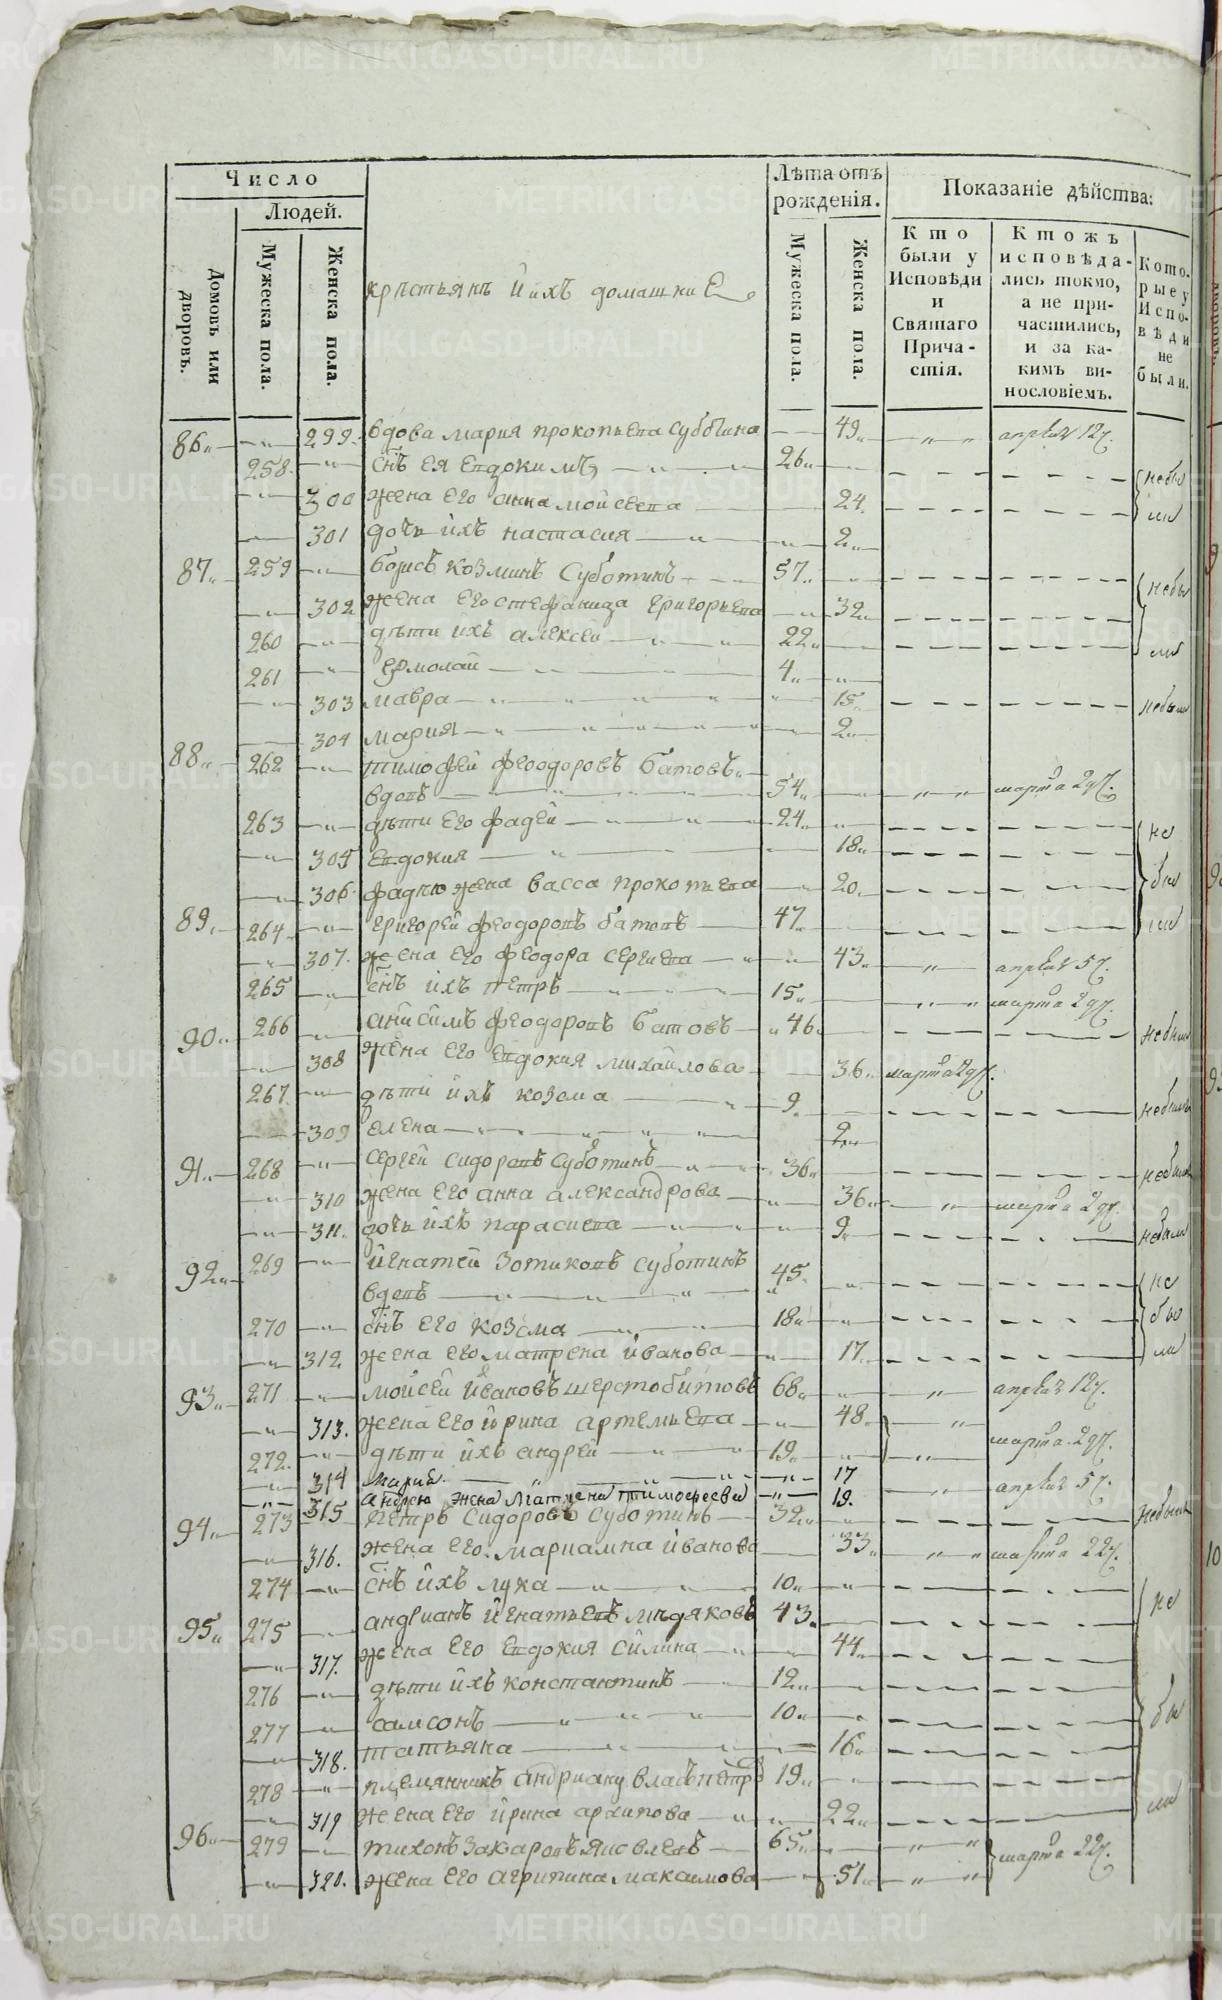 Число
Лѣта отъ рожденія.
Показаніе дѣйства:
Домовъ или дворовъ.
Людей.
Мужеска пола.
Женска пола.
крестьянъ и ихъ домашние
Мужеска пола.
Женска пола.
Кто были у Исповѣди и Святаго Причастія.
Ктожъ исповѣдались токмо, а не причастились, и за какимъ винословіемъ.
Которые у Исповѣди не были.
86 299 вдова мария прокопьева субботина 49 апреля 12ч.
258 снъ ея евдокимъ 26 небы
300 жена его анна моисеева 24 ли
301 дочь ихъ настасия 2
87 259 борисъ козминъ суботинъ 57 небы
302 жена его стефанида григорьева 32
260 дѣти ихъ алексей 22 ли
261 ермолай 4
303 мавра 15 небыли
304 мария 2
88 262 тимофей феодоровъ батовъ
вдовъ 54 марта 29ч.
263 дѣти его фадей 24 не
305 евдокия 18
306 фадею жена васса прокопьева 20 бы
89 264 григорей феодоровъ батовъ 47 ли
307 жена его феодора сергиева 43 апреля 5ч.
265 снъ ихъ петръ 15 марта 29ч.
90 266 анисимъ феодоровъ батовъ 46 небыли
308 жена его евдокия михайлова 36 марта 29ч.
267 дѣти ихъ козма 9 небыли
309 елена 2
91 268 сергей сидоровъ суботинъ 36 небыли
310 жена его анна александрова 36 марта 29ч.
311 дочь ихъ парасиева 9 небыли
92 269 игнатей зотиковъ суботинъ
вдовъ 45 не
270 снъ его козма 18 бы
312 жена его матрена иванова 17 ли
93 271 мойсей ивановъ шерстобитовъ 68 апреля 12ч.
313 жена его ирина артемьева 48
272 дѣти ихъ андрей 19 марта 29ч.
314 мария 17 апреля 5ч.
315 андрею жена матрена тимофеева 19
94 273 петръ сидоровъ суботинъ 32 небыли
316 жена его мариамна иванова 33 марта 22ч.
274 снъ ихъ лука 10
95 275 андрианъ игнатьевъ мѣдяковъ 43 не
317 жена его евдокия силина 44
276 дѣти ихъ константинъ 12
277 самсонъ 10 бы
318 татьяна 16
278 племянникъ андриану власъ петровъ 19
319 жена его ирина архипова 22 ли
96 279 тихонъ захаровъ яковлевъ 65
320 жена его агрипина максимова 51 марта 22ч.